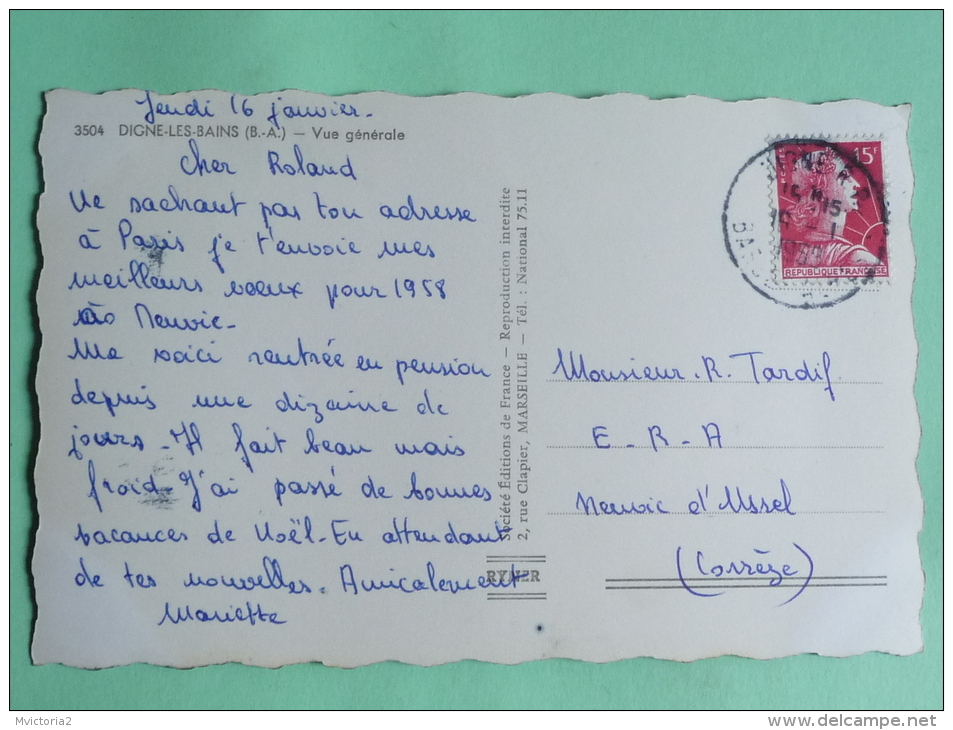 Jeudi 16 janvier.
3504 DIGNE-LES-BAINS (B.-A.) — Vue générale
Cher Roland
Ne sachant pas ton adresse
à Paris je t'envoie mes
meilleurs voeux pour 1958
à Neuvic.
Me voici rentrée en pension
depuis une dizaine de
jours. Il fait beau mais
froid. J'ai passé de bonnes
vacances de Noël. En attendant
de tes nouvelles. Amicalement
Mariette
Société Éditions de France — Reproduction interdite
2, rue Clapier, MARSEILLE — Tél. : National 75.11
RYNER
15F
REPUBLIQUE FRANÇAISE
Monsieur. R. Tardif
E - R - A
Neuvic d'Ussel
(Corrèze)
Mvictoria2
www.delcampe.net